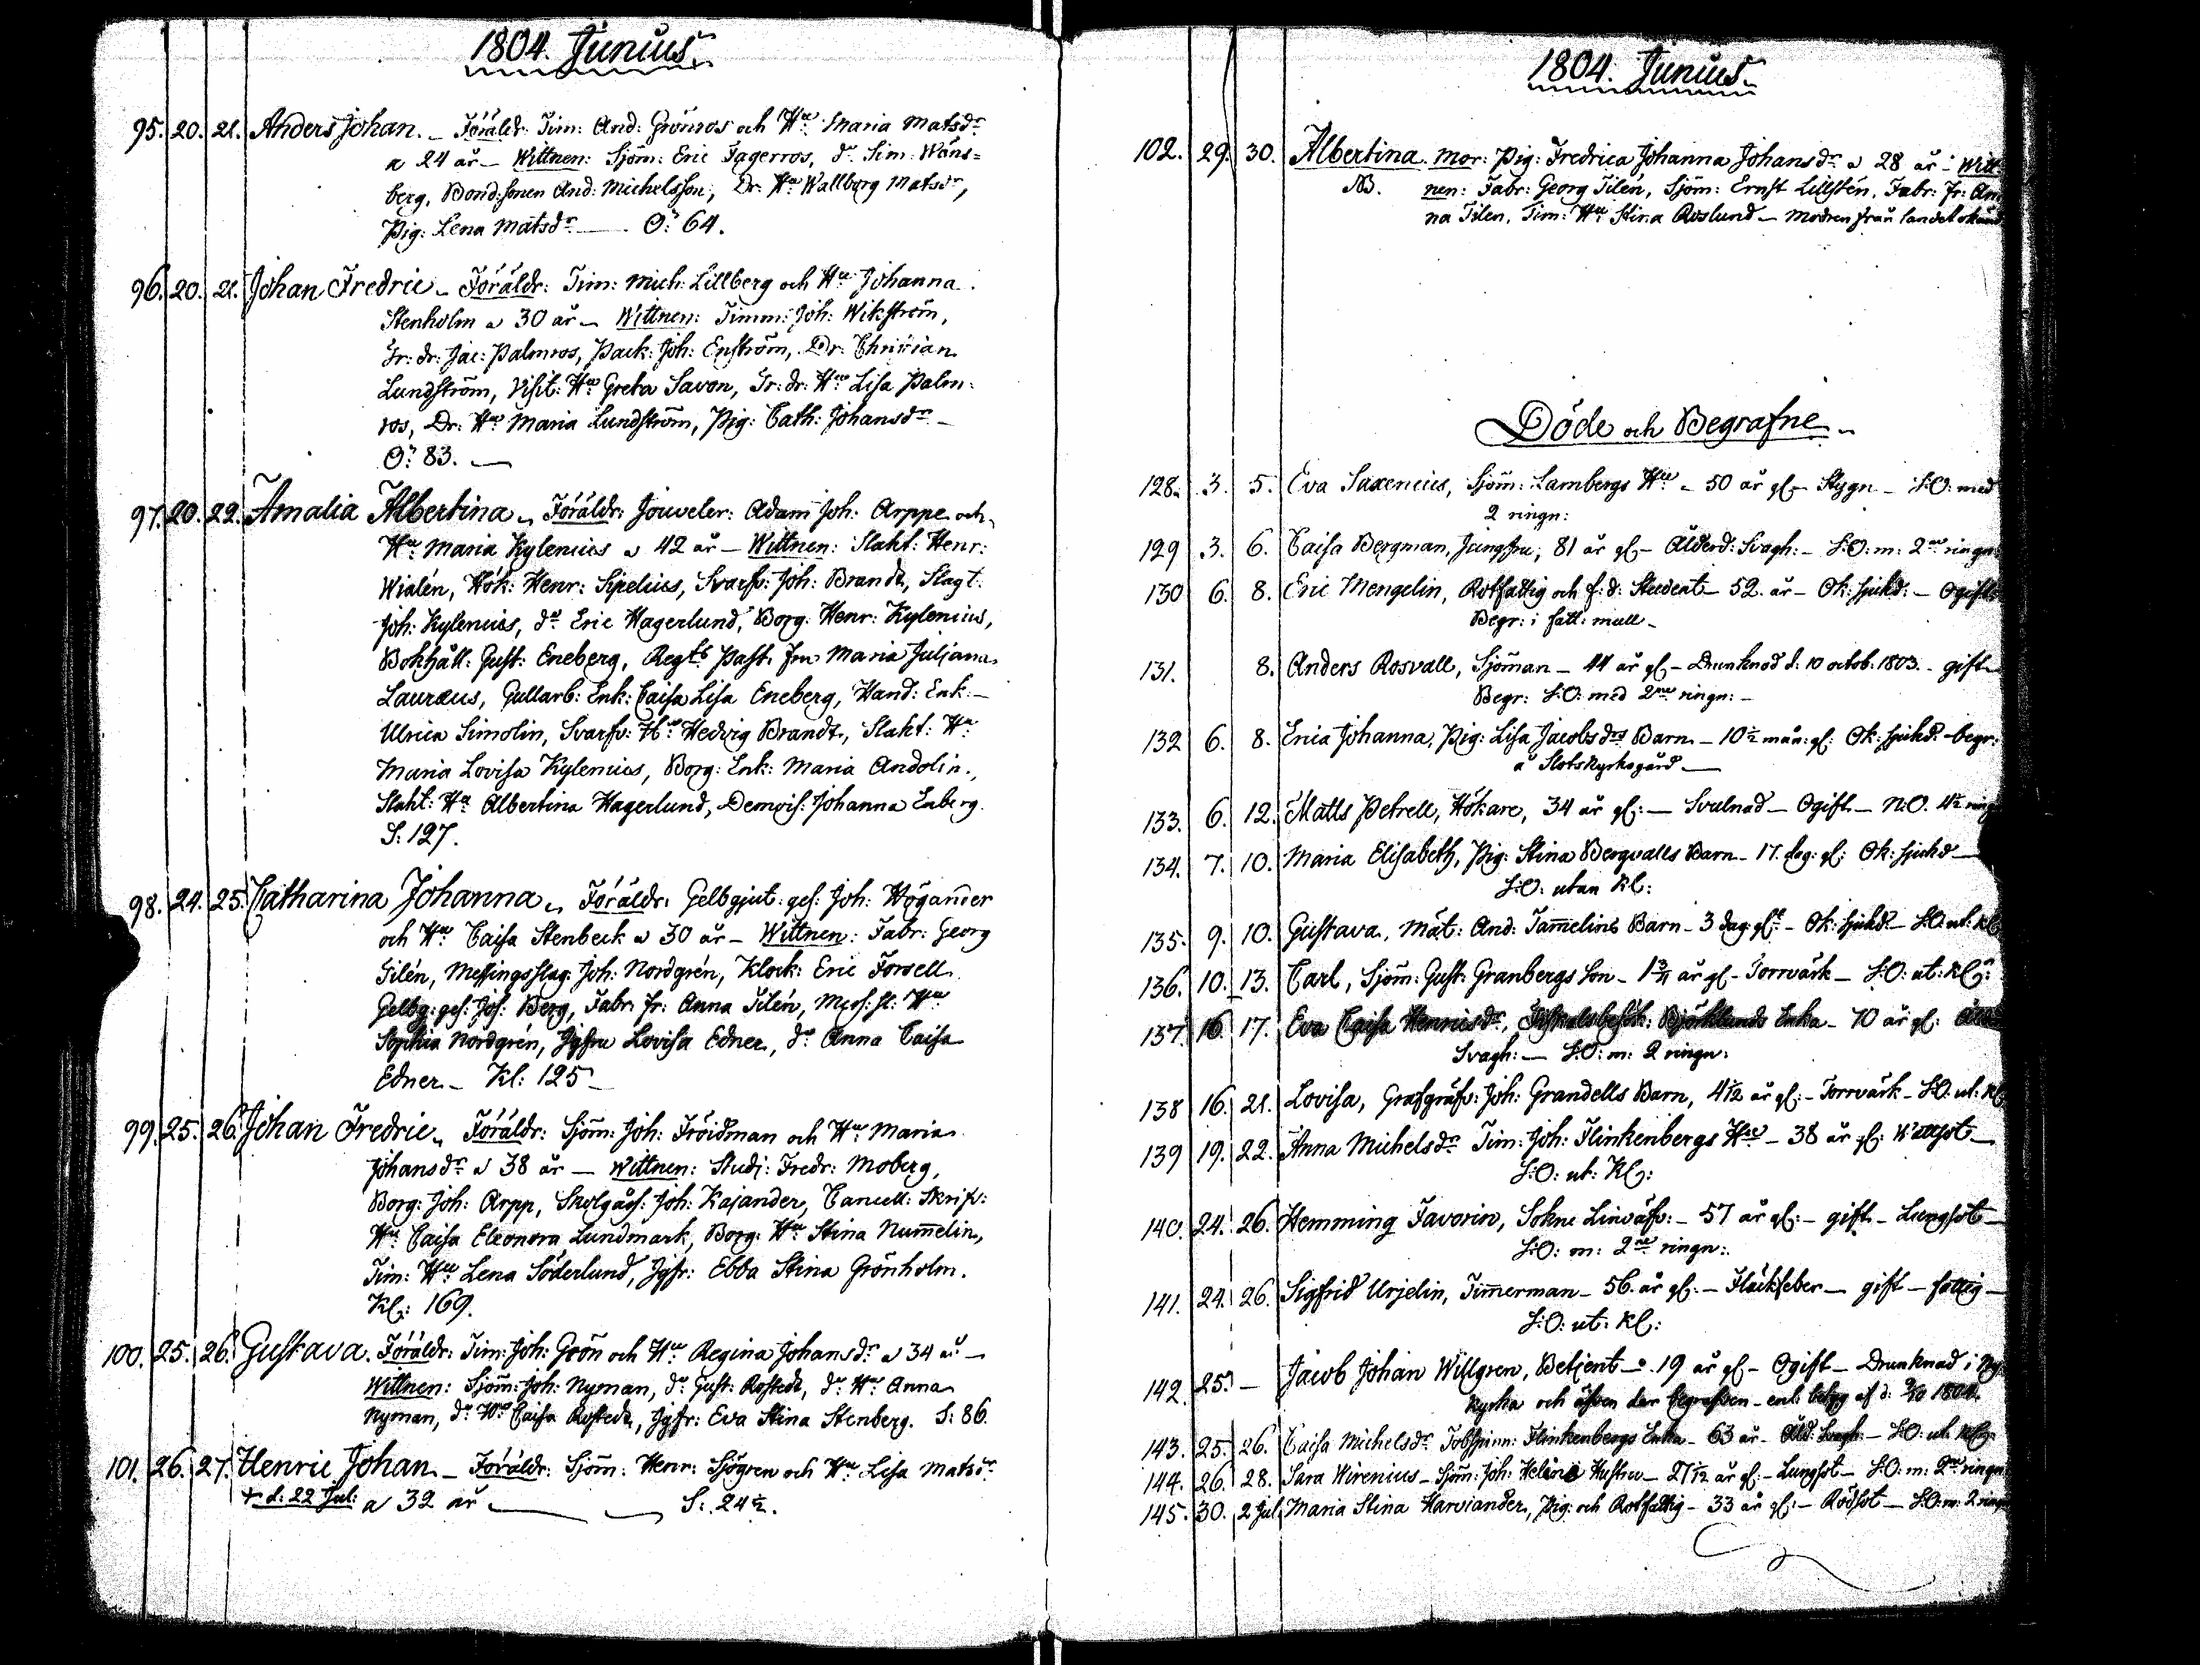 1804. Junius.
95. 20. 21. Anders Johan. – Föräldr: Tim: And: Grönros och H:u Maria Matsd:r
a 24 år – Wittnen: Sjöm: Eric Fagerros, d:o Sim: Wäns=
berg, Bond:sonen And: Michelsson, Dr: H:u Wallborg Matsd:r,
Pig: Lena Matsd:r — O: 64.
96. 20. 21. Johan Fredric – Föräldr: Tim: Mich: Lillberg och H:u Johanna
Stenholm a 30 år – Wittnen: Timm: Joh: Wikström,
Fr: dr: Jac: Palmros, Pack: Joh: Enström, Dr: Christian
Lundström, Visit: H:u Greta Savon, Fr: dr: H:u Lisa Palm:
ros, Dr: H:u Maria Lundström, Pig: Cath: Johansd:r –
O: 83. —
97. 20. 22. Amalia Albertina – Föräldr: Jouveler: Adam Joh: Arppe och
H:u Maria Kylenius a 42 år – Wittnen: Slakt: Henr:
Wialén, Hök: Henr: Sipelius, Svarfv: Joh: Brandt, Slagt:
Joh: Kylenius, d:o Eric Hagerlund, Borg: Henr: Kylenius,
Bokhåll: Gust: Eneberg, Regts Past: fru Maria Juliana
Lauræus, Gullarb: Enk: Caisa Lisa Eneberg, Hand: Enk: –
Ulrica Simolin, Svarfv: H:u Hedvig Brandt, Slakt: H:u
Maria Lovisa Kylenius, Borg: Enk: Maria Andolin.,
Slakt: H:u Albertina Hagerlund, Demois: Johanna Enberg.
S: 127.
98. 24. 25. Catharina Johanna – Föräldr: Gelbgjut: ges: Joh: Högander
och H:u Caisa Stenbeck a 30 år – Wittnen: Fabr: Georg
Tilén, Messingsslag: Joh: Nordgrén, Klock: Eric Forsell
Gelbg: ges: Joh: Berg, Fabr: fr: Anna Tilén, Mess: sl: H:u
Sophia Nordgrén, Jgfru Lovisa Edner, d:o Anna Caisa
Edner – Kl: 125 –
99. 25. 26. Johan Fredric – Föräldr: Sjöm: Joh: Fröidman och H:u Maria
Johansd:r a 38 år – Wittnen: Studi: Fredr: Moberg,
Borg: Joh: Arpp, Skolgåss: Joh: Kajander, Cancell: Skrifv:
H:u Caisa Eleonora Lundmark, Borg: H:u Stina Numelin,
Tim: H:u Lena Söderlund, Jgfr: Ebba Stina Grönholm.
Kl: 169.
100. 25. 26. Gustava. Föräldr: Tim: Joh: Grön och H:u Regina Johansd:r a 34 år –
Wittnen: Sjöm: Joh: Nyman, d:o Gust: Rostedt, d:o H:u Anna
Nyman, d:o H:u Caisa Rostedt, Jgfr: Eva Stina Stenberg. S: 86.
101. 26. 27. Henric Johan – Föräldr: Sjöm: Henr: Sjögren och H:u Lisa Matsd:r
+ d: 22 Jul: a 32 år — S: 24 1/2.
1804. Junius.
102. 29. 30. Albertina. Mor: Pig: Fredrica Johanna Johansd:r a 28 år – Witt-
NB. nen: Fabr: Georg Tilén, Sjöm: Ernst Lillstén, Fabr: fr: An-
na Tilen, Tim: H:u Stina Roslund – modren från landet okänd
Döde och Begrafne
128. 3. 5. Eva Saxenius, Sjöm: Lambergs H:u – 50 år gl – Stygn – S:O: med
2 ringn:
129 3. 6. Caisa Bergman, Jungfru, 81 år gl – Ålderd: Svagh: – S:O: m: 2:ne ringn:
130 6. 8. Eric Mengelin, Rotfattig och f: d: Student – 52. år – Ok: sjukd: – Ogift
Begr: i fatt: mull –
131. 8. Anders Rosvall, Sjöman – 44 år gl – Drunknad d: 10 octob: 1803. – gift
Begr: S:O: med 2:ne ringn: –
132 6. 8. Erica Johanna, Pig: Lisa Jacobsd:rs Barn – 10 1/2 mån: gl: Ok: sjukd: – begr:
å Slotskyrkogård —
133. 6. 12. Matts Petrell, Hökare, 34 år gl: – Svulnad – Ogift – N:O. 4 1/2 ring
134. 7. 10. Maria Elisabeth, Pig: Stina Bergvalls Barn – 17. dag: gl: Ok: sjukd —
S:O: utan Kl:
135. 9. 10. Gustava, Mät: And: Tamelins Barn – 3 dag: gl: – Ok: sjukd – S:O: ut: kl
136. 10. 13. Carl, Sjöm: Gust: Granbergs Son – 1 3/4 år gl – Torrvärk – S:O: ut: Kl:
137. 16. 17. Eva Caisa Henricsd:r, Björklunds Enka – 70 år gl:
Svagh: — S:O: m: 2 ringn:
138 16. 21. Lovisa, Grafgräfv: Joh: Grandells Barn, 4 1/2 år gl: – Torrvärk – S:O: ut: Kl
139 19. 22. Anna Michelsd:r Tim: Joh: Flinkenbergs H:u – 38 år gl:
S:O: ut: Kl:
140. 24. 26. Hemming Favorin, Sokne Linväfv: – 57 år gl: – gift – Lungsot –
S:O: m: 2:ne ringn:
141. 24. 26. Sigfrid Urjelin, Timerman – 56. år gl: – Fläckfeber – gift – fattig –
S:O: ut: Kl:
142. 25. – Jacob Johan Willgren, Betjent – 19 år gl – Ogift – Drunknad i Ny
kyrka och äfven der begrafven –
143. 25. 26. Caisa Michelsd:r Flinkenbergs Enka – 63 år – Åld: Svagh: – S:O: ut: Kl:
144. 26. 28. Sara Wirenius – Sjöm: Joh: Hustru – 27 1/2 år gl: – Lungsot – S:O: m: 2:ne ringn
145. 30. 2 Jul. Maria Stina Harviander, Pig: och Rotfattig – 33 år gl: – Rödsot — S:O: m: 2 ring